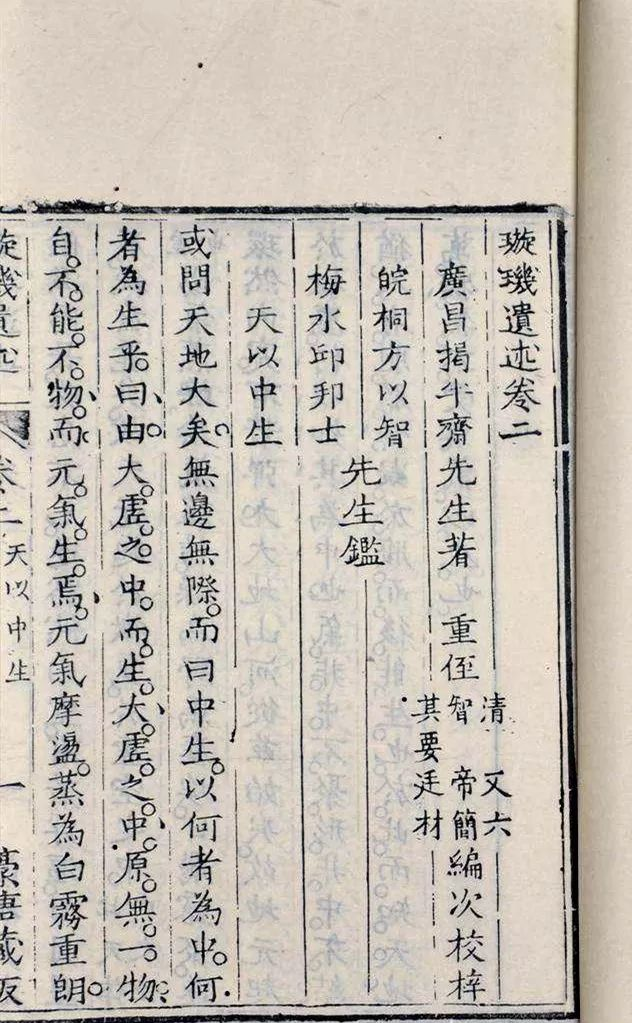 璇璣遺述卷二
廣昌揭半齋先生著 重侄 清 又六 智 帝簡 其要 廷材 編次校梓
皖桐方以智
梅水邱邦士 先生鑑
天以中生
或問天地大矣無邊無際而曰中生以何者為中何
者為生乎曰由大虛之中而生大虛之中原無一物
自不能不物而元氣生焉元氣摩盪蒸為白霧重朗
璇璣遺述 卷二 天以中生 一 藏板